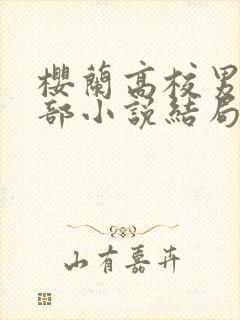 櫻蘭高校男
部小說結局
山有嘉卉